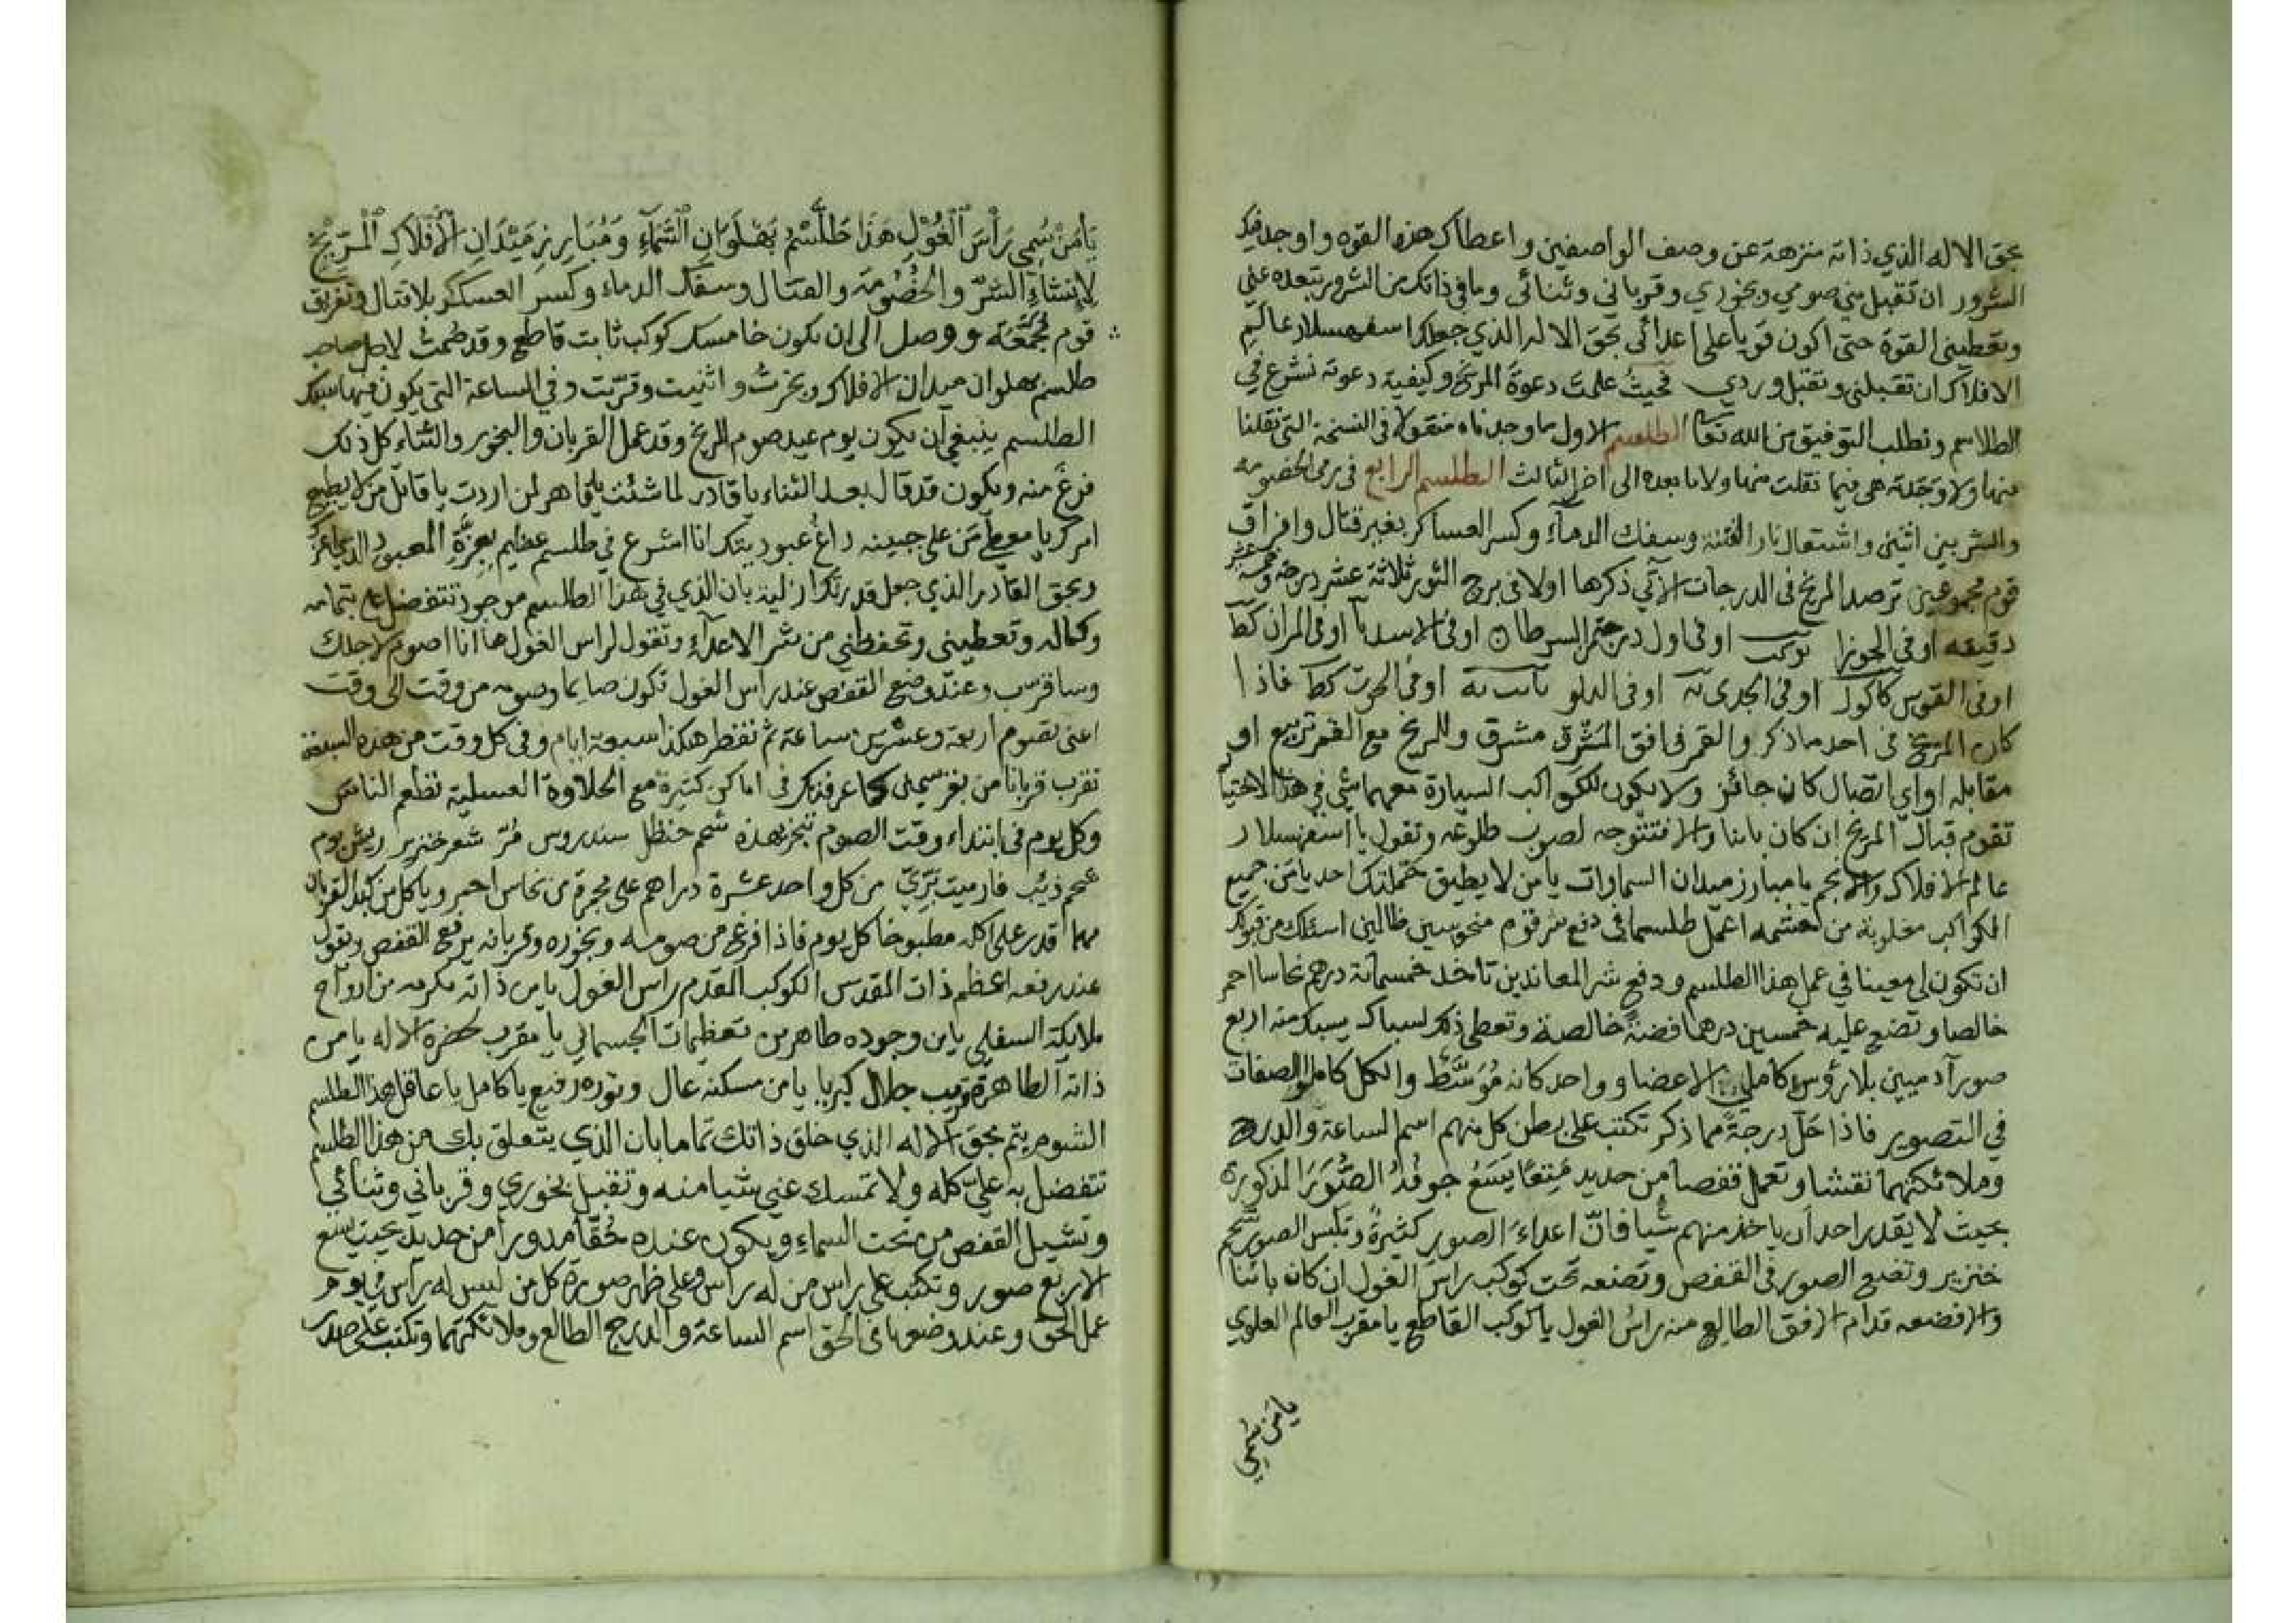 بحق الاله الذي ذاته منزهة عن وصف الواصفين واعطاك هذه القوه واوجد فيك
الشرور ان تقبل مني صومي وبخوري وقرباني وثنائي وما في ذاتك من الشرور تبعده عني
وتعطيني القوة حتى اكون قويا على اعدائي بحق الاله الذي جعلك اسفهسلار عالم
الافلاك ان تقبلني وتقبل وردي فحيث علمت دعوة المريخ وكيفية دعوته نشرع في
الطلاسم ونطلب التوفيق من الله تعا الطلسم الاول ما وجدناه منقولا في النسخة التي نقلنا
منها ولا وجدته هي فيما نقلت منها ولا ما بعده الى اخر الثالث الطلسم الرابع في رمي الخصومة
والشر بين اثنين واشتعال نار الفتنة وسفك الدماء وكسر العساكر بغير قتال وافراق
قوم مجموعين ترصد المريخ في الدرجات الآتي ذكرها اولا في برج الثور ثلاثة عشر درجة وخمسة عشر
دقيقه او في الجوزا او في اول درجة السرطان او في الاسد او في الميزان كط
او في القوس او في الجدي او في الدلو او في الحوت كط فاذا
كان المريخ في احد ما ذكر والقمر في افق المشرق مشرق وللمريخ مع القمر تربيع او
مقابله او اي اتصال كان جائز ولا يكون للكواكب السيارة معهما شي في هذا الاختيار
تقوم قبال المريخ ان كان باينا والا فتتوجه لصوب طلوعه وتقول يا اسفهسلار
عالم الافلاك والانجم يا مبارز ميدان السماوات يا من لا يطيق حملتك احد يا من جميع
الكواكب مغلوبة من اعمل طلسما في دفع شر قوم منحوسين ظالمين اسئلك من قوتك
ان تكون لي معينا في عمل هذا الطلسم ودفع شر المعاندين تاخذ خمسمائة درهم نحاسا احمر
خالصا وتضع عليه خمسين درهما فضة خالصة وتعطي ذلك لسباك يسبك منه اربع
صور آدميين بلا رؤس كاملي الاعضا وواحد كانه موسط والكل كاملو الصفات
في التصوير فاذا حل درجة مما ذكر تكتب على بطن كل منهم اسم الساعة والدرج
وملائكتهما نقشا وتعمل قفصا من حديد يسع جوفه الصور المذكورة
بحيث لا يقدر احد ان ياخذ منهم شيا فان اعداء الصور كثيرة وتلبس الصور شحم
خنزير وتضع الصور في القفص وتضعه تحت كوكب راس الغول ان كان بائنا
والا فضعه قدام الافق الطالع منه راس الغول يا كوكب القاطع يا مقرب العالم العلوي
يا من سمي
يا من سمي رأس الغول هذا طلسم بهلوان السماء ومبارز ميدان الافلاك المريخ
لانشاء الشر والخصومة والقتال وسفك الدماء وكسر العسكر بلا قتال وتفريق
قوم مجتمعة ووصل الى ان يكون خامسك كوكب ثابت قاطع وقد صمت لاجل صاحب
طلسم بهلوان ميدان الافلاك وبخرت واثنيت وقربت وفي الساعة التي يكون فيها سبك
الطلسم ينبغي ان يكون يوم عيد صوم المريخ وقد عمل القربان والبخور والثناء كل ذلك
فرغ منه ويكون قد قال بعد الثناء يا قادر لما شئت يا قاهر لمن اردت يا قاتل من لا يطيع
امرك يا معطي من على جبينه داغ عبوديتك انا اشرع في طلسم عظيم بعزة المعبود الذي اعزك
وبحق القادر الذي جعل قدرتك ازلية بان الذي في هذا الطلسم موجود تتفضل علي بتمامه
وكماله وتعطيني وتحفظني من شر الاعداء وتقول لراس الغول ها انا اصوم لاجلك
وساقرب وعند وضع القفص عند راس الغول تكون صايما وصومه من وقت الى وقت
اعني تصوم اربعة وعشرين ساعة ثم تفطر هكذا سبعة ايام وفي كل وقت من هذه السبعة
تقرب قربانا من بقر سمين كما عرفتك في اماكن كثيرة مع الحلاوة العسلية تطعم الناس
وكل يوم في ابتداء وقت الصوم تبخر بهذه شحم حنظل سندروس مر شعر خنزير ريش بوم
شحم ذيب من كل واحد عشرة دراهم على مجمرة من نحاس احمر وياكل من كبد القربان
مهما قدر على اكله مطبوخا كل يوم فاذا فرغ من صومه وبخوره وقربانه يرفع القفص وتقول
عند رفعه اعظم ذات المقدس الكوكب المقدم راس الغول يا من ذاته مكرمه من ارواح
ملايكة السفلي يا من وجوده طاهر من تعظيمات الجسماني يا مقرب حضرة الاله يا من
ذاته الطاهرة قريب جلال كبريا يا من مسكنه عال ونوره رفيع يا كامل يا عاقل هذا الطلسم
الشوم يتم بحق الاله الذي خلق ذاتك تماما بان الذي يتعلق بك من هذا الطلسم
تتفضل به علي كله ولا تمسك عني شيا منه وتقبل بخوري وقرباني وثنائي
وتشيل القفص من تحت السماء ويكون عنده حقا مدورا من حديد بحيث يسع
الاربع صور وتكتب على راس من له راس وعلى ظهر صورة كل من ليس له رأس في يوم
عمل الحق وعند وضعها في الحق اسم الساعة والدرج الطالع وملائكتهما وتكتب على صدر